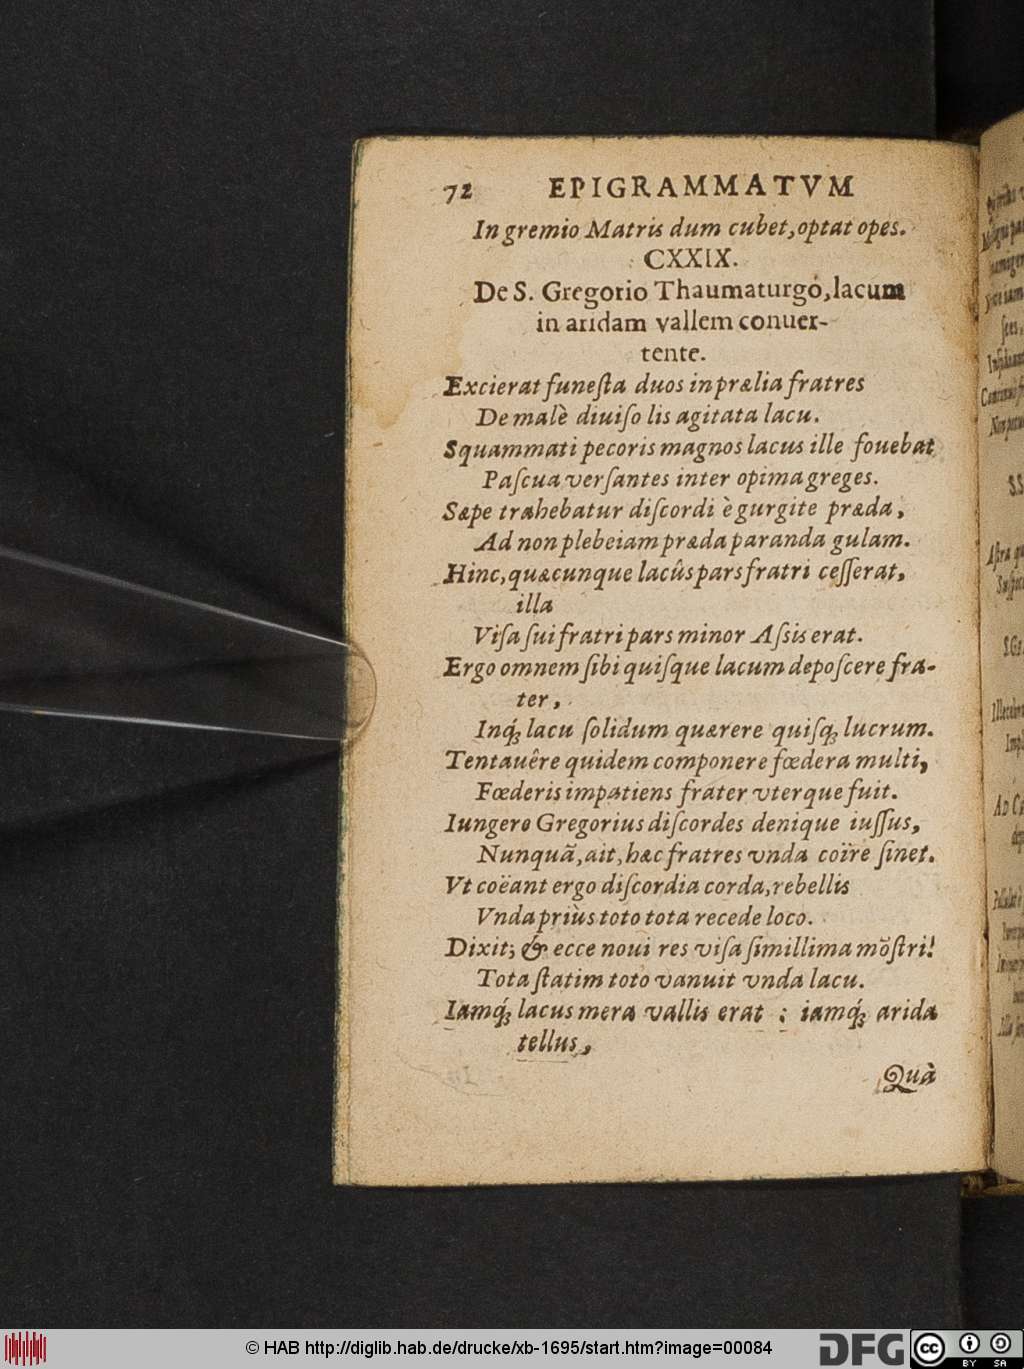 72 EPIGRAMMATVM
In gremio Matris dum cubet, optat opes.
CXXIX.
De S. Gregorio Thaumaturgo, lacum
in aridam vallem conuer-
tente.
Excierat funeſta duos in prælia fratres
De malè diuiſo lis agitata lacu.
Squammati pecoris magnos lacus ille fouebat
Paſcua verſantes inter opima greges.
Sæpe trahebatur diſcordi è gurgite præda,
Ad non plebeiam præda paranda gulam.
Hinc, quæcunque lacûs pars fratri ceſſerat,
illa
Viſa ſui fratri pars minor Aſsis erat.
Ergo omnem ſibi quiſque lacum depoſcere fra-
ter,
Inq́ꝫ lacu ſolidum quærere quiſqꝫ lucrum.
Tentauêre quidem componere fœdera multi,
Fœderis impatiens frater vterque fuit.
Iungere Gregorius diſcordes denique iuſſus,
Nunquã, ait, hæc fratres vnda coïre ſinet.
Vt coëant ergo diſcordia corda, rebellis
Vnda priùs toto tota recede loco.
Dixit; & ecce noui res viſa ſimillima mõſtri!
Tota ſtatim toto vanuit vnda lacu.
Iamq́ꝫ lacus mera vallis erat ; iamq́ꝫ arida
tellus,
Quà
© HAB http://diglib.hab.de/drucke/xb-1695/start.htm?image=00084
DFG
cc BY SA